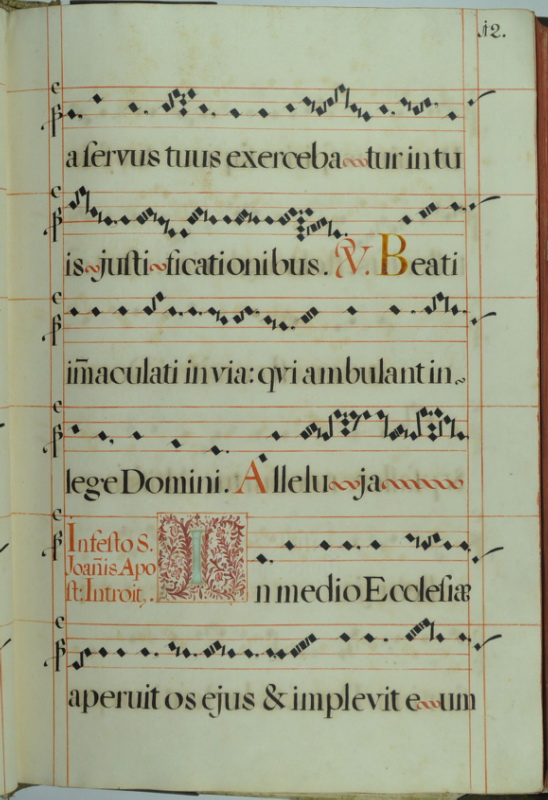 12.
a servus tuus exerceba tur in tu
is justi ficationibus. ℣. Beati
im̃aculati in via: qvi ambulant in
lege Domini. Allelu ja
In festo S.
Joan̄is Apo
st: Introit.
In medio Ecclesiæ
aperuit os ejus & implevit e um